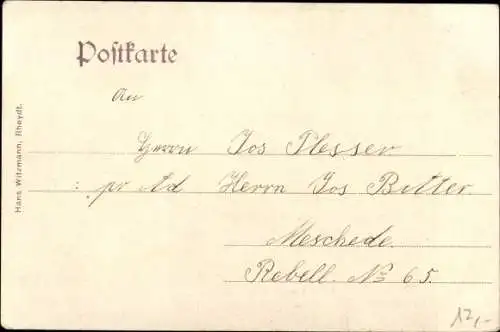 Postkarte
An
Herrn Jos Plesser
pr Ad Herrn Jos Bitter
Meschede.
Rebell. No 65.
Hans Witzmann, Rheydt.
12,-